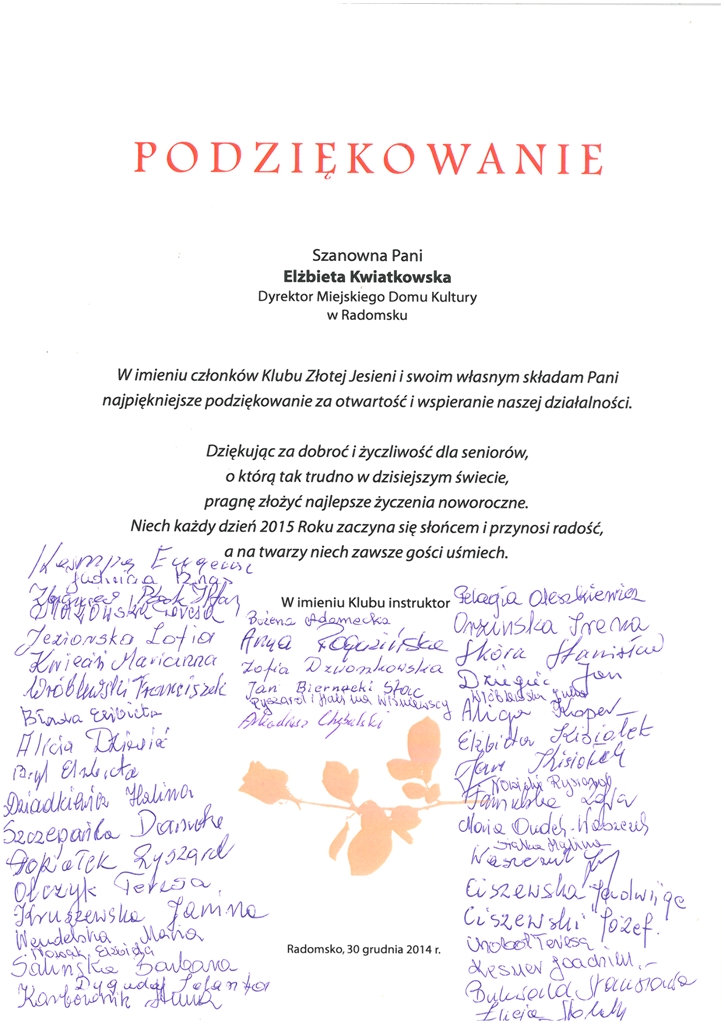 PODZIĘKOWANIE
Szanowna Pani
Elżbieta Kwiatkowska
Dyrektor Miejskiego Domu Kultury
w Radomsku
W imieniu członków Klubu Złotej Jesieni i swoim własnym składam Pani
najpiękniejsze podziękowanie za otwartość i wspieranie naszej działalności.
Dziękując za dobroć i życzliwość dla seniorów,
o którą tak trudno w dzisiejszym świecie,
pragnę złożyć najlepsze życzenia noworoczne.
Niech każdy dzień 2015 Roku zaczyna się słońcem i przynosi radość,
a na twarzy niech zawsze gości uśmiech.
W imieniu Klubu instruktor
Kempa
Jadwiga
Jeziorska Zofia
Kwiecań Marianna
Wróblewski Franciszek
Elżbieta
Alicja
Bryl Elżbieta
Dziadkiewicz Halina
Szczepańska Danuta
Ryszard
Olczyk Teresa
Kruszewska Janina
Wendelska Maria
Nowak Elżbieta
Salińska Barbara
Dygudaj
Bożena Adamecka
Anna Rogozińska
Zofia Dzwonkowska
Jan Biernacki
Ryszard i Halina Wiśniewscy
Arkadiusz
Pelagia Oleszkiewicz
Irena
Skóra Stanisław
Dzięgieć Jan
Wróblewska
Alicja Koper
Elżbieta Kisiołek
Jan Kisiołek
Nowicki Ryszard
Maria Dudek
Ciszewska Jadwiga
Ciszewski Józef
Teresa
Lesner Joachim
Stanisława
Alicja
Radomsko, 30 grudnia 2014 r.